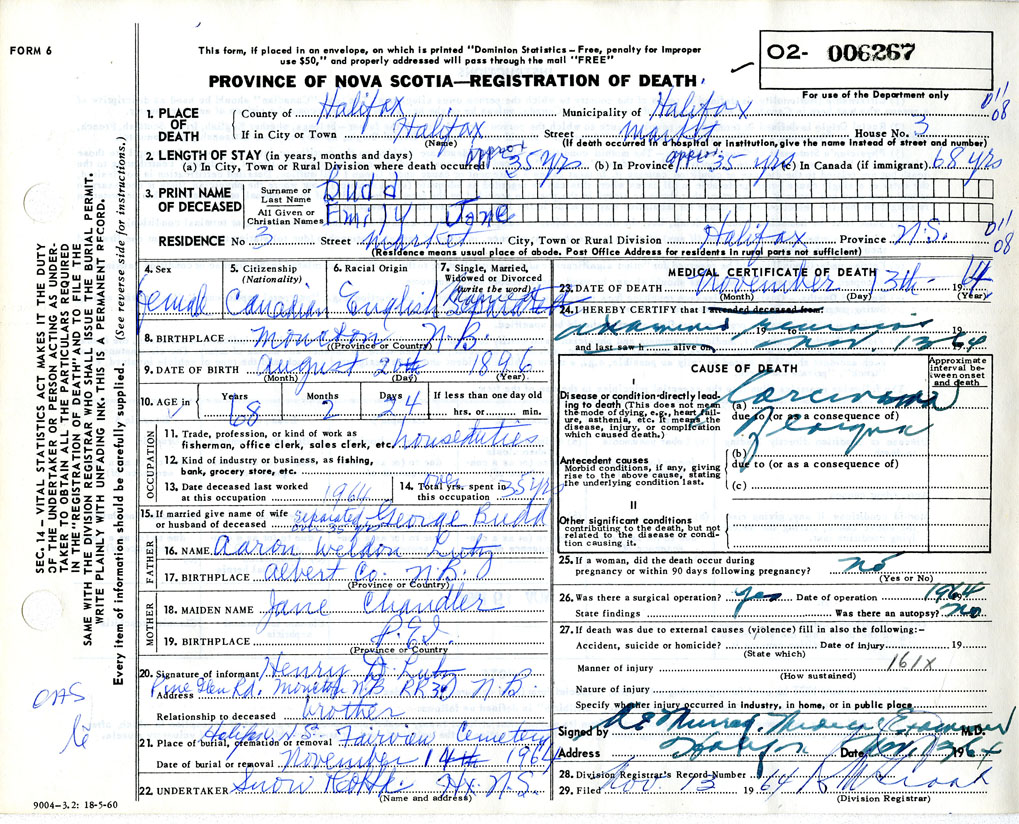 FORM 6
This form, if placed in an envelope, on which is printed "Dominion Statistics – Free, penalty for improper
use $50," and properly addressed will pass through the mail "FREE"
PROVINCE OF NOVA SCOTIA—REGISTRATION OF DEATH
O2- 006267
For use of the Department only
1. PLACE OF DEATH
County of Halifax Municipality of Halifax
011 08
If in City or Town Halifax Street Market House No. 3
(Name) (If death occurred in a hospital or institution, give the name instead of street and number)
2. LENGTH OF STAY (in years, months and days)
(a) In City, Town or Rural Division where death occurred approx 35 yrs (b) In Province approx 35 yrs (c) In Canada (if immigrant) 68 yrs
3. PRINT NAME OF DECEASED
Surname or Last Name Budd
All Given or Christian Names Emily Jane
RESIDENCE No 3 Street Market City, Town or Rural Division Halifax Province N.S.
011 08
(Residence means usual place of abode. Post Office Address for residents in rural parts not sufficient)
4. Sex
female
5. Citizenship (Nationality)
Canadian
6. Racial Origin
English
7. Single, Married, Widowed or Divorced (write the word)
Separated
8. BIRTHPLACE Moncton N.B.
(Province or Country)
9. DATE OF BIRTH August 20th 1896
(Month) (Day) (Year)
10. AGE in Years 68 Months 2 Days 24 If less than one day old
hrs. or min.
OCCUPATION
11. Trade, profession, or kind of work as
fisherman, office clerk, sales clerk, etc. houseduties
12. Kind of industry or business, as fishing,
bank, grocery store, etc.
13. Date deceased last worked
at this occupation 1964
14. Total yrs. spent in
this occupation over 35 yrs
15. If married give name of wife
or husband of deceased separated over 35 yrs George Budd
FATHER
16. NAME Aaron Weldon Lutz
17. BIRTHPLACE Albert Co. N.B.
(Province or Country)
MOTHER
18. MAIDEN NAME Jane Chandler
19. BIRTHPLACE P.E.I.
(Province or Country
20. Signature of informant Henry D. Lutz
Address Pine Glen Rd. Moncton N.B. RR 3 N.B.
Relationship to deceased brother
21. Place of burial, cremation or removal Halifax N.S. Fairview Cemetery
Date of burial or removal November 14th 1964
22. UNDERTAKER Snow Hx. N.S.
(Name and address)
9004–3.2: 18-5-60
MEDICAL CERTIFICATE OF DEATH
23. DATE OF DEATH November 13th 1964
(Month) (Day) (Year)
24. I HEREBY CERTIFY that I attended deceased from
examined remains 19 to 19
and last saw h alive on Nov. 13 64
CAUSE OF DEATH
Approximate interval between onset and death
I
Disease or condition directly leading to death (This does not mean
the mode of dying, e.g., heart failure, asthenia, etc. It means the
disease, injury, or complication
which caused death.)
(a) Carcinoma
due to (or as a consequence of)
Larynx
(b)
due to (or as a consequence of)
(c)
Antecedent causes
Morbid conditions, if any, giving
rise to the above cause, stating
the underlying condition last.
II
Other significant conditions
contributing to the death, but not
related to the disease or condition causing it.
25. If a woman, did the death occur during
pregnancy or within 90 days following pregnancy? no
(Yes or No)
26. Was there a surgical operation? yes Date of operation 1964 19
State findings Was there an autopsy? no
27. If death was due to external causes (violence) fill in also the following:–
Accident, suicide or homicide? Date of injury 19
(State which)
Manner of injury 161X
(How sustained)
Nature of injury
Specify whether injury occurred in industry, in home, or in public place
Signed by Murray Medical Examiner M.D.
Address Halifax Date Nov. 13 1964
28. Division Registrar's Record Number
29. Filed Nov 13 1964
(Division Registrar)
SEC. 14 – VITAL STATISTICS ACT MAKES IT THE DUTY
OF THE UNDERTAKER OR PERSON ACTING AS UNDER-
TAKER TO OBTAIN ALL THE PARTICULARS REQUIRED
IN THE "REGISTRATION OF DEATH" AND TO FILE THE
SAME WITH THE DIVISION REGISTRAR WHO SHALL ISSUE THE BURIAL PERMIT.
WRITE PLAINLY WITH UNFADING INK. THIS IS A PERMANENT RECORD.
Every item of information should be carefully supplied. (See reverse side for instructions.)
OAS